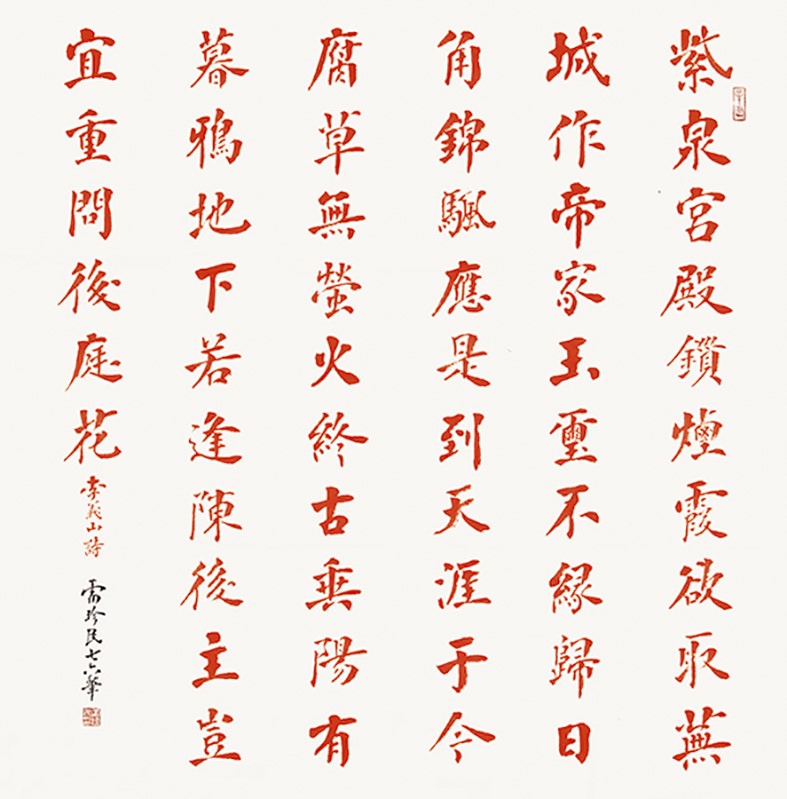 紫泉宮殿鎖煙霞欲取蕪
城作帝家玉璽不緣歸日
角錦颿應是到天涯于今
腐草無螢火終古垂陽有
暮鴉地下若逢陳後主豈
宜重問後庭花
李義山詩
雷珍民七六筆